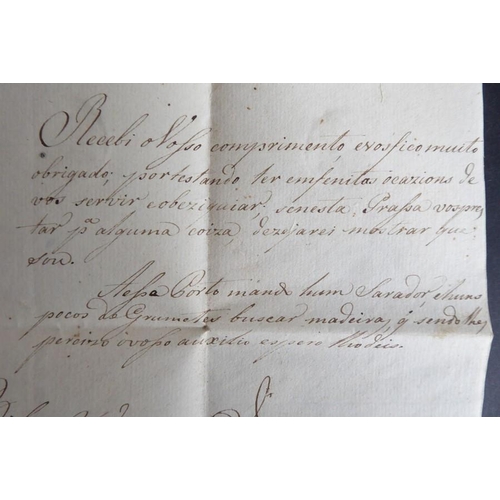 Recebi o Vosso comprimento, e vos fico muito
obrigado; portestando ter emfenitas ocazions de
vos servir e obeziquiar, se nesta Prassa vos pres
tar pª alguma coiza, dezejarei mostrar que
sou.
Nessa Porto mando hum Sarador, e huns
pocos de Grumetes buscar madeira, q sendo lhe
percizo o voso auxilio espero lho deis.